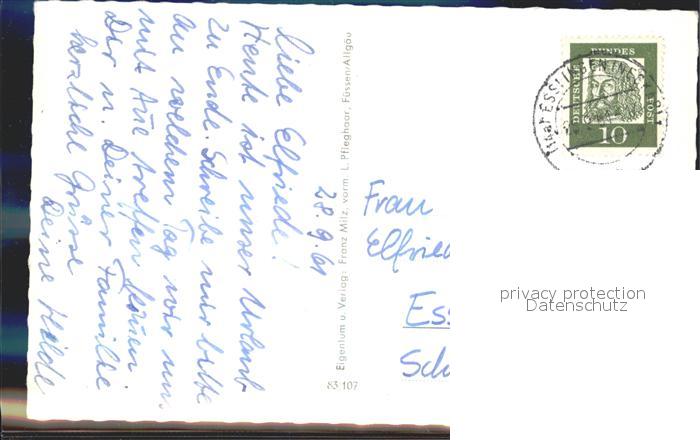 28.9.61
Liebe Elfriede!
Heute ist unser Urlaub
zu Ende. Schreibe mir bitte
an welchem Tag wir uns
mit Ane treffen können
Dir u. Deiner Familie
herzliche Grüsse
Deine Hilde
Eigentum u. Verlag: Franz Milz, vorm. L. Pfleghaar, Füssen/Allgäu
83 107
DEUTSCHE
BUNDES
POST
10
ESSLINGEN
Frau
Elfried
Ess
Sch
privacy protection
Datenschutz